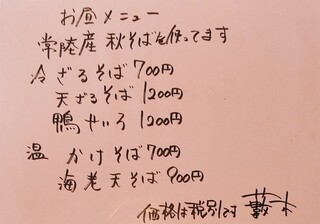 お昼メニュー
常陸産 秋そばを使ってます
冷 ざるそば 700円
天ざるそば 1200円
鴨せいろ 1200円
温 かけそば 700円
海老天そば 900円
価格は税別です